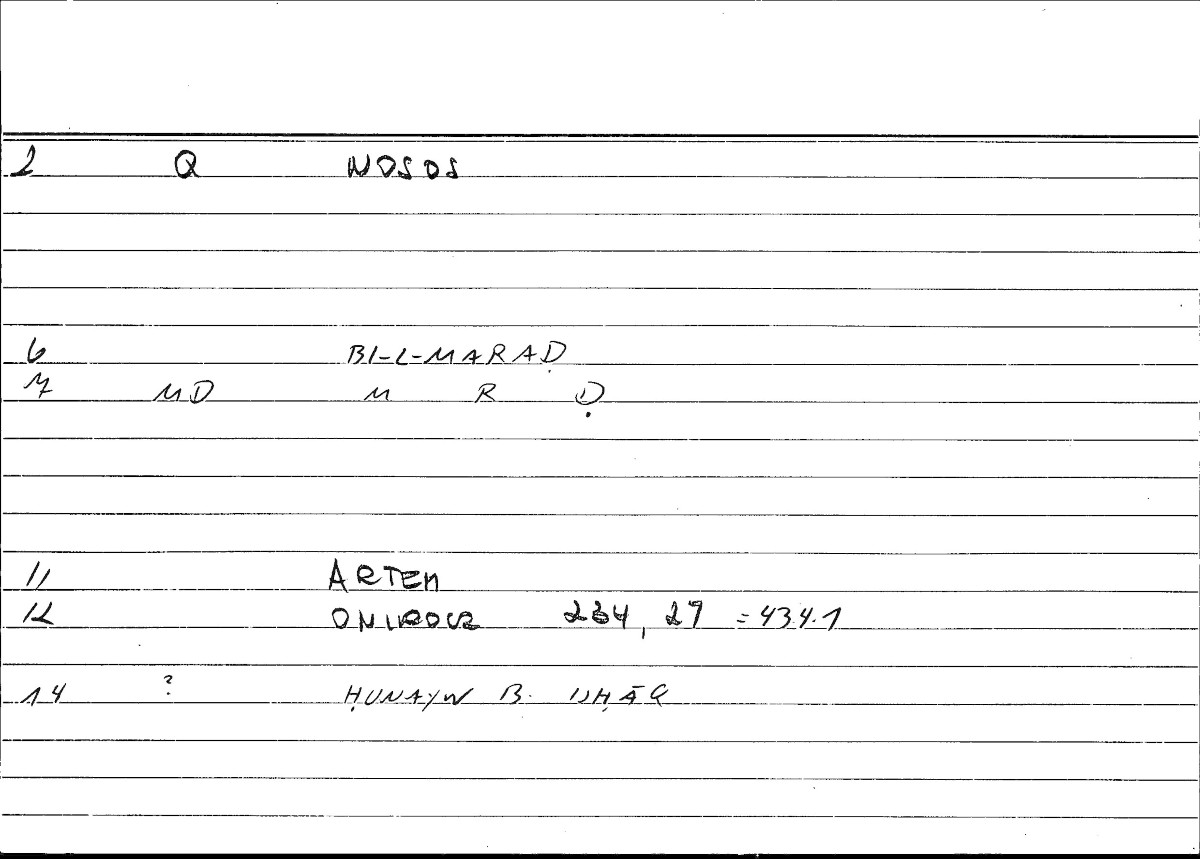 2 Q NOSOS
6 BI-L-MARAḌ
7 MD M R Ḍ
11 ARTEM
12 ONIROCR 234, 27 = 434.1
14 ? ḤUNAYN B. ISḤĀQ